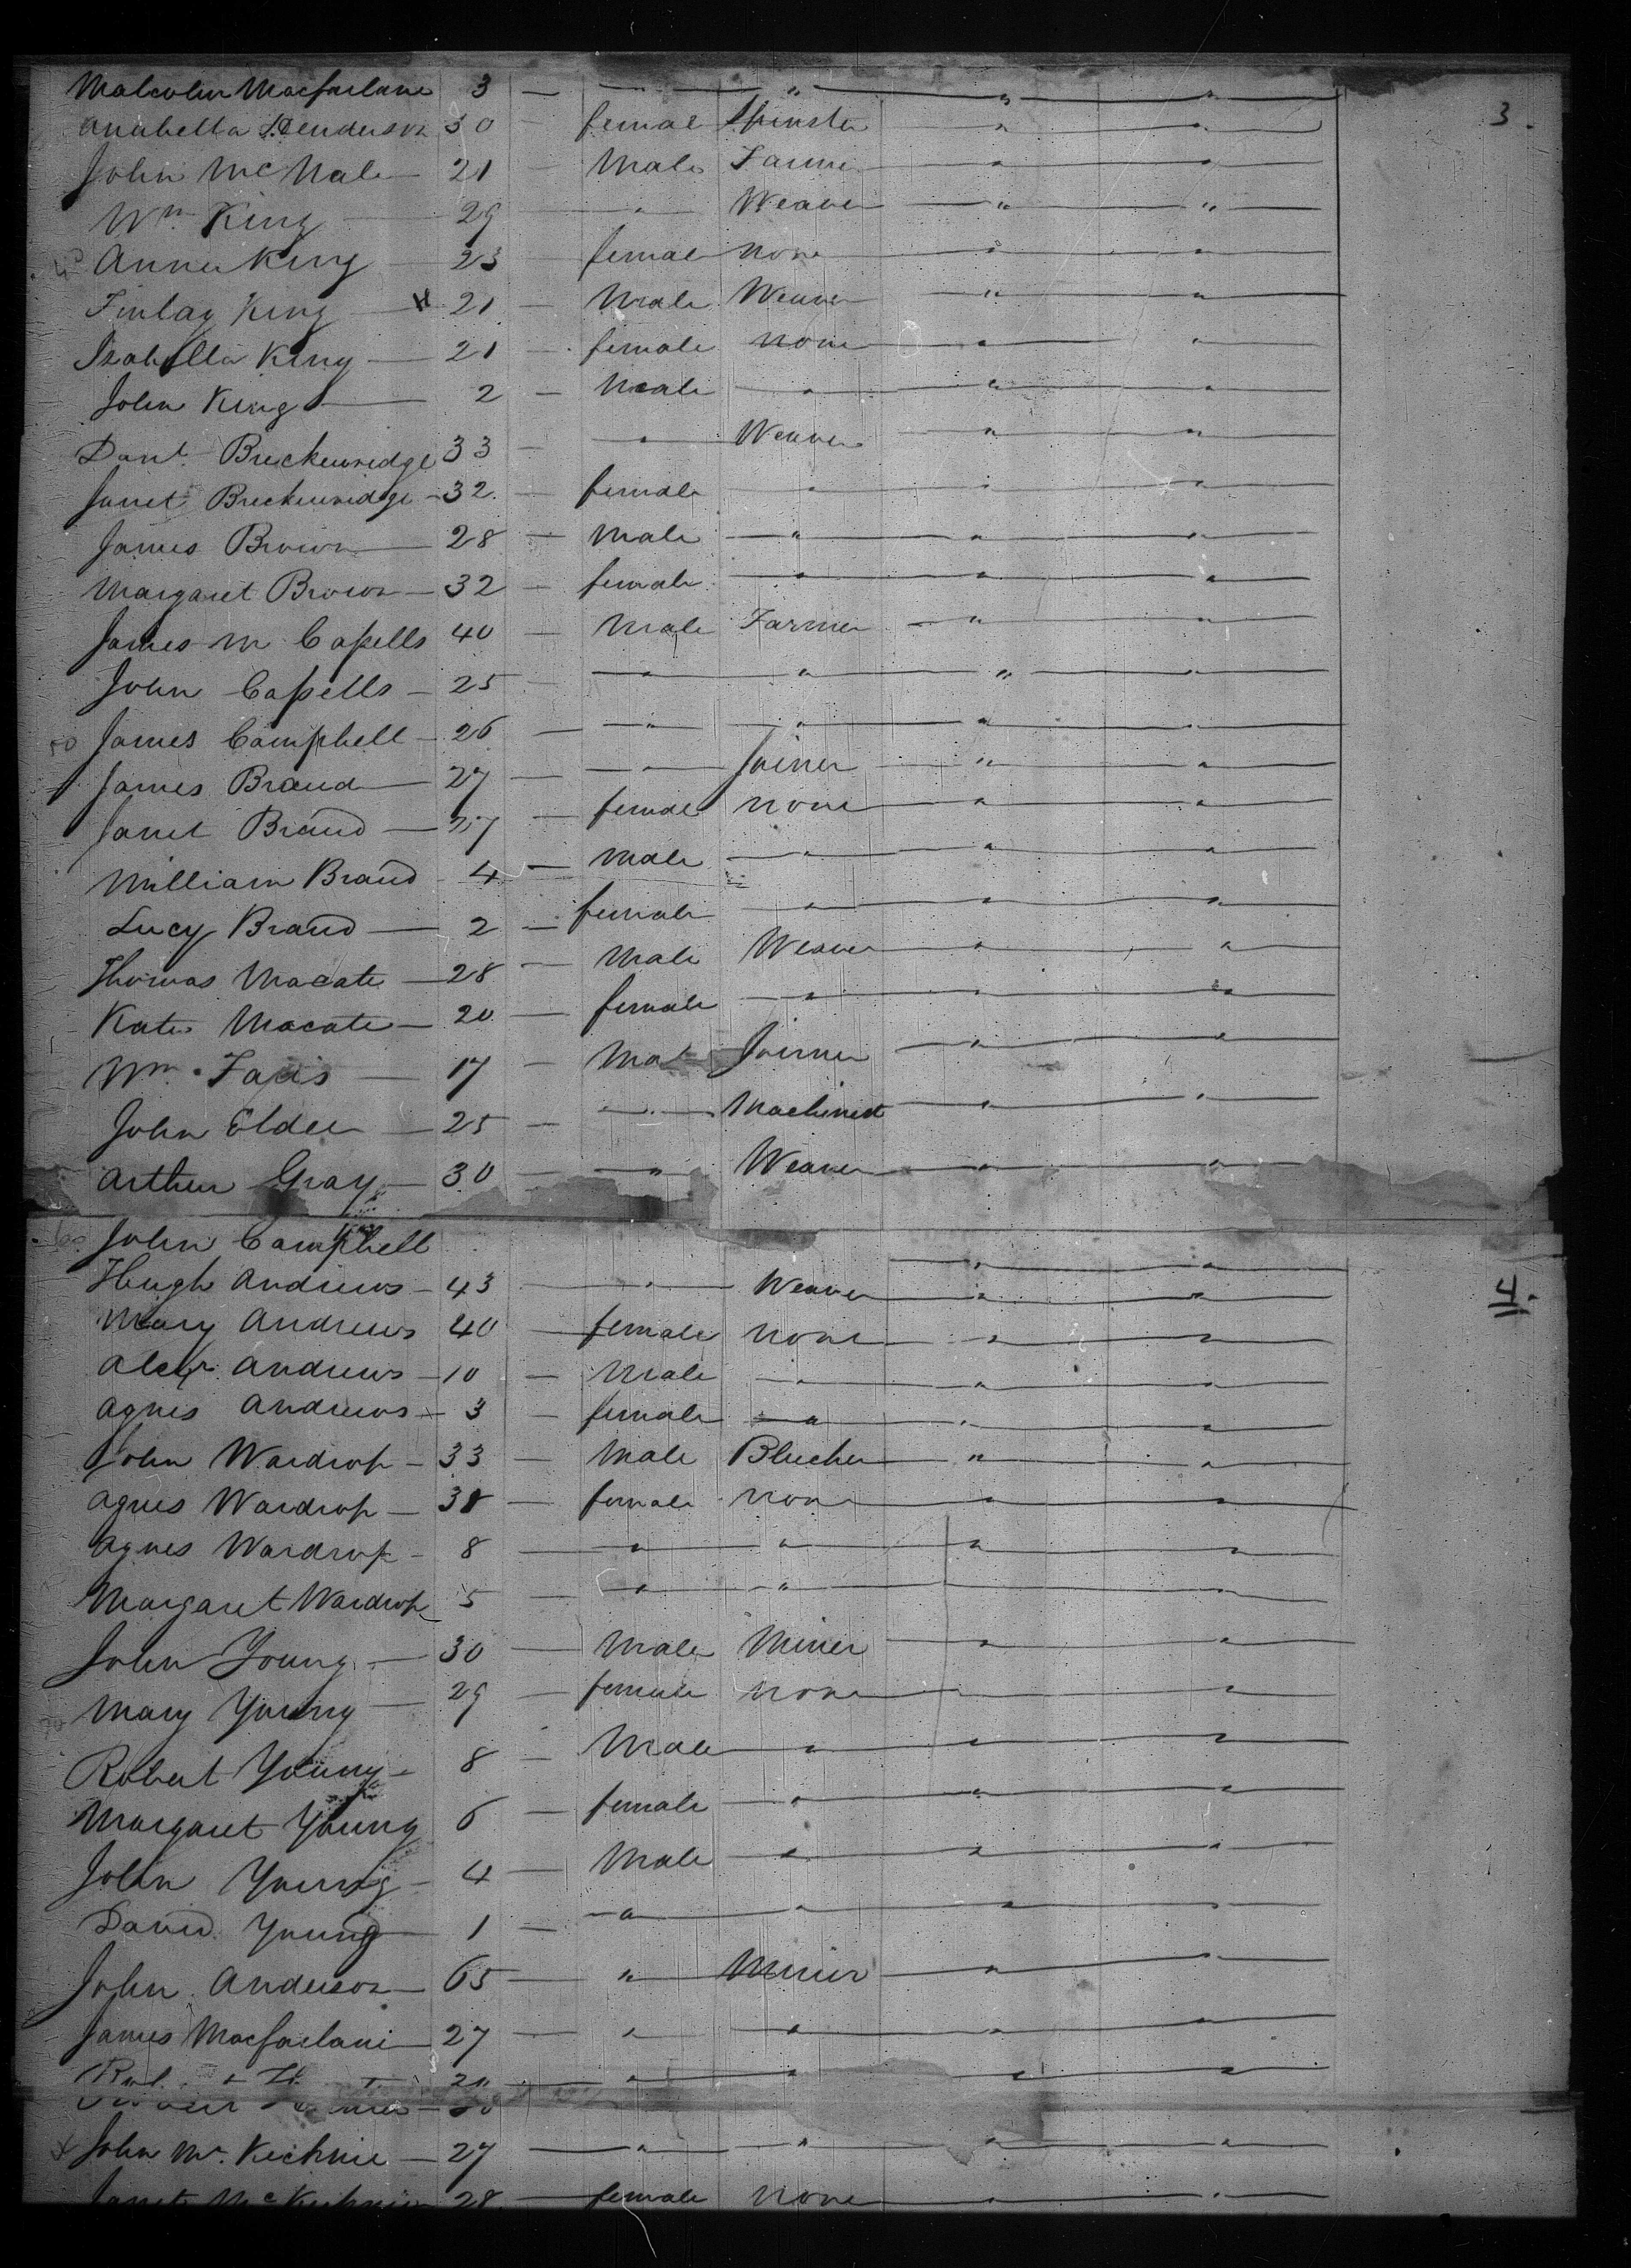 Malcolm Macfarlane 3 — — " " "
3.
Anabella Henderson 30 — femal Spinster " "
John McNale 21 — Male Farmer " "
Wm King 29 " Weaver " "
Anna King 23 female none " "
Finlay King X 21 — Male Weaver " "
Isabella King — 21 — female none " "
John King — 2 — Male " " "
Danl. Breckenridge 33 — " Weaver " "
Janet Breckenridge — 32 — female " " "
James Brown — 28 — Male " " "
Margaret Brown — 32 — female " " "
James M Capells 40 — Male Farmer " "
John Capells — 25 " " " "
50 James Campbell — 26 — " " " "
James Brand — 27 — " Joiner " "
Janet Brand — 27 — female none " "
William Brand 4 — Male " " "
Lucy Brand — 2 — female " " "
Thomas Macate — 28 — Male Weaver " "
Kate Macate — 20 — female " " "
Wm. — 17 — Mal Joiner " "
John Elder — 25 — " Machinist " "
Arthur Gray — 30 — " Weaver " "
60 John Campbell " "
4.
Hugh Andrews — 43 " Weaver " "
Mary Andrews 40 — female none " "
Alexr. Andrews — 10 — Male " " "
Agnes Andrews — 3 — female " " "
John Wardrop — 33 — Male Bleecher " "
Agnes Wardrop — 38 — female none " "
Agnes Wardrop — 8 — " " " "
Margaret Wardrop 5 — " " "
John Young — 30 — Male Miner " "
Mary Young — 29 — female none " "
Robert Young — 8 — Male " " "
Margaret Young 6 — female " " "
John Young — 4 — Male " " "
David Young — 1 — " " " "
John Anderson — 65 — " Miner " "
James Macfarlane — 27 — " " " "
" " " "
John Mc. Kechnie — 27 — " " " "
Janet McKechnie 28 — female none " "